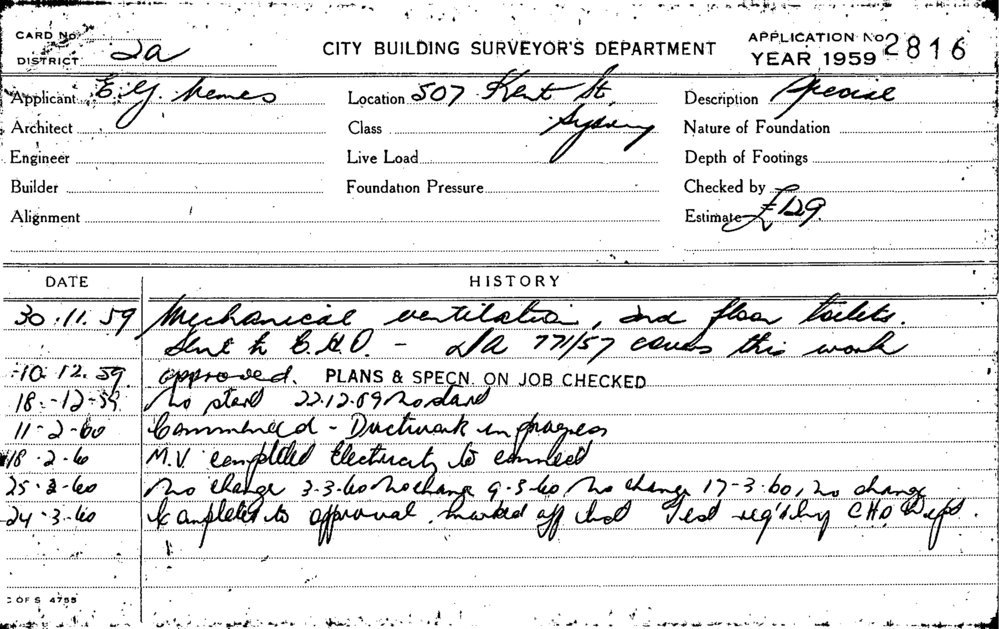 CARD No.
DISTRICT 2a
CITY BUILDING SURVEYOR'S DEPARTMENT
APPLICATION No 2816
YEAR 1959
Applicant E. G. Nemes
Location 507 Kent St,
Sydney
Description Special
Architect
Class
Nature of Foundation
Engineer
Live Load
Depth of Footings
Builder
Foundation Pressure
Checked by
Alignment
Estimate £129
DATE HISTORY
30.11.59 Mechanical ventilation, 2nd floor toilets.
Sent to C.H.O. - 2a 771/57 covers this work
10.12.59 approved. PLANS & SPECN. ON JOB CHECKED
18-12-59 No start 22.12.59 No start
11-2-60 Commenced - Ductwork in progress
18-2-60 M.V. completed Electricity to connect
25-2-60 No change 3-3-60 No change 9-3-60, No change 17-3-60, no change
24-3-60 Completed to approval. marked off Test req'd by C.H.O. Dept.
C OF S 4755